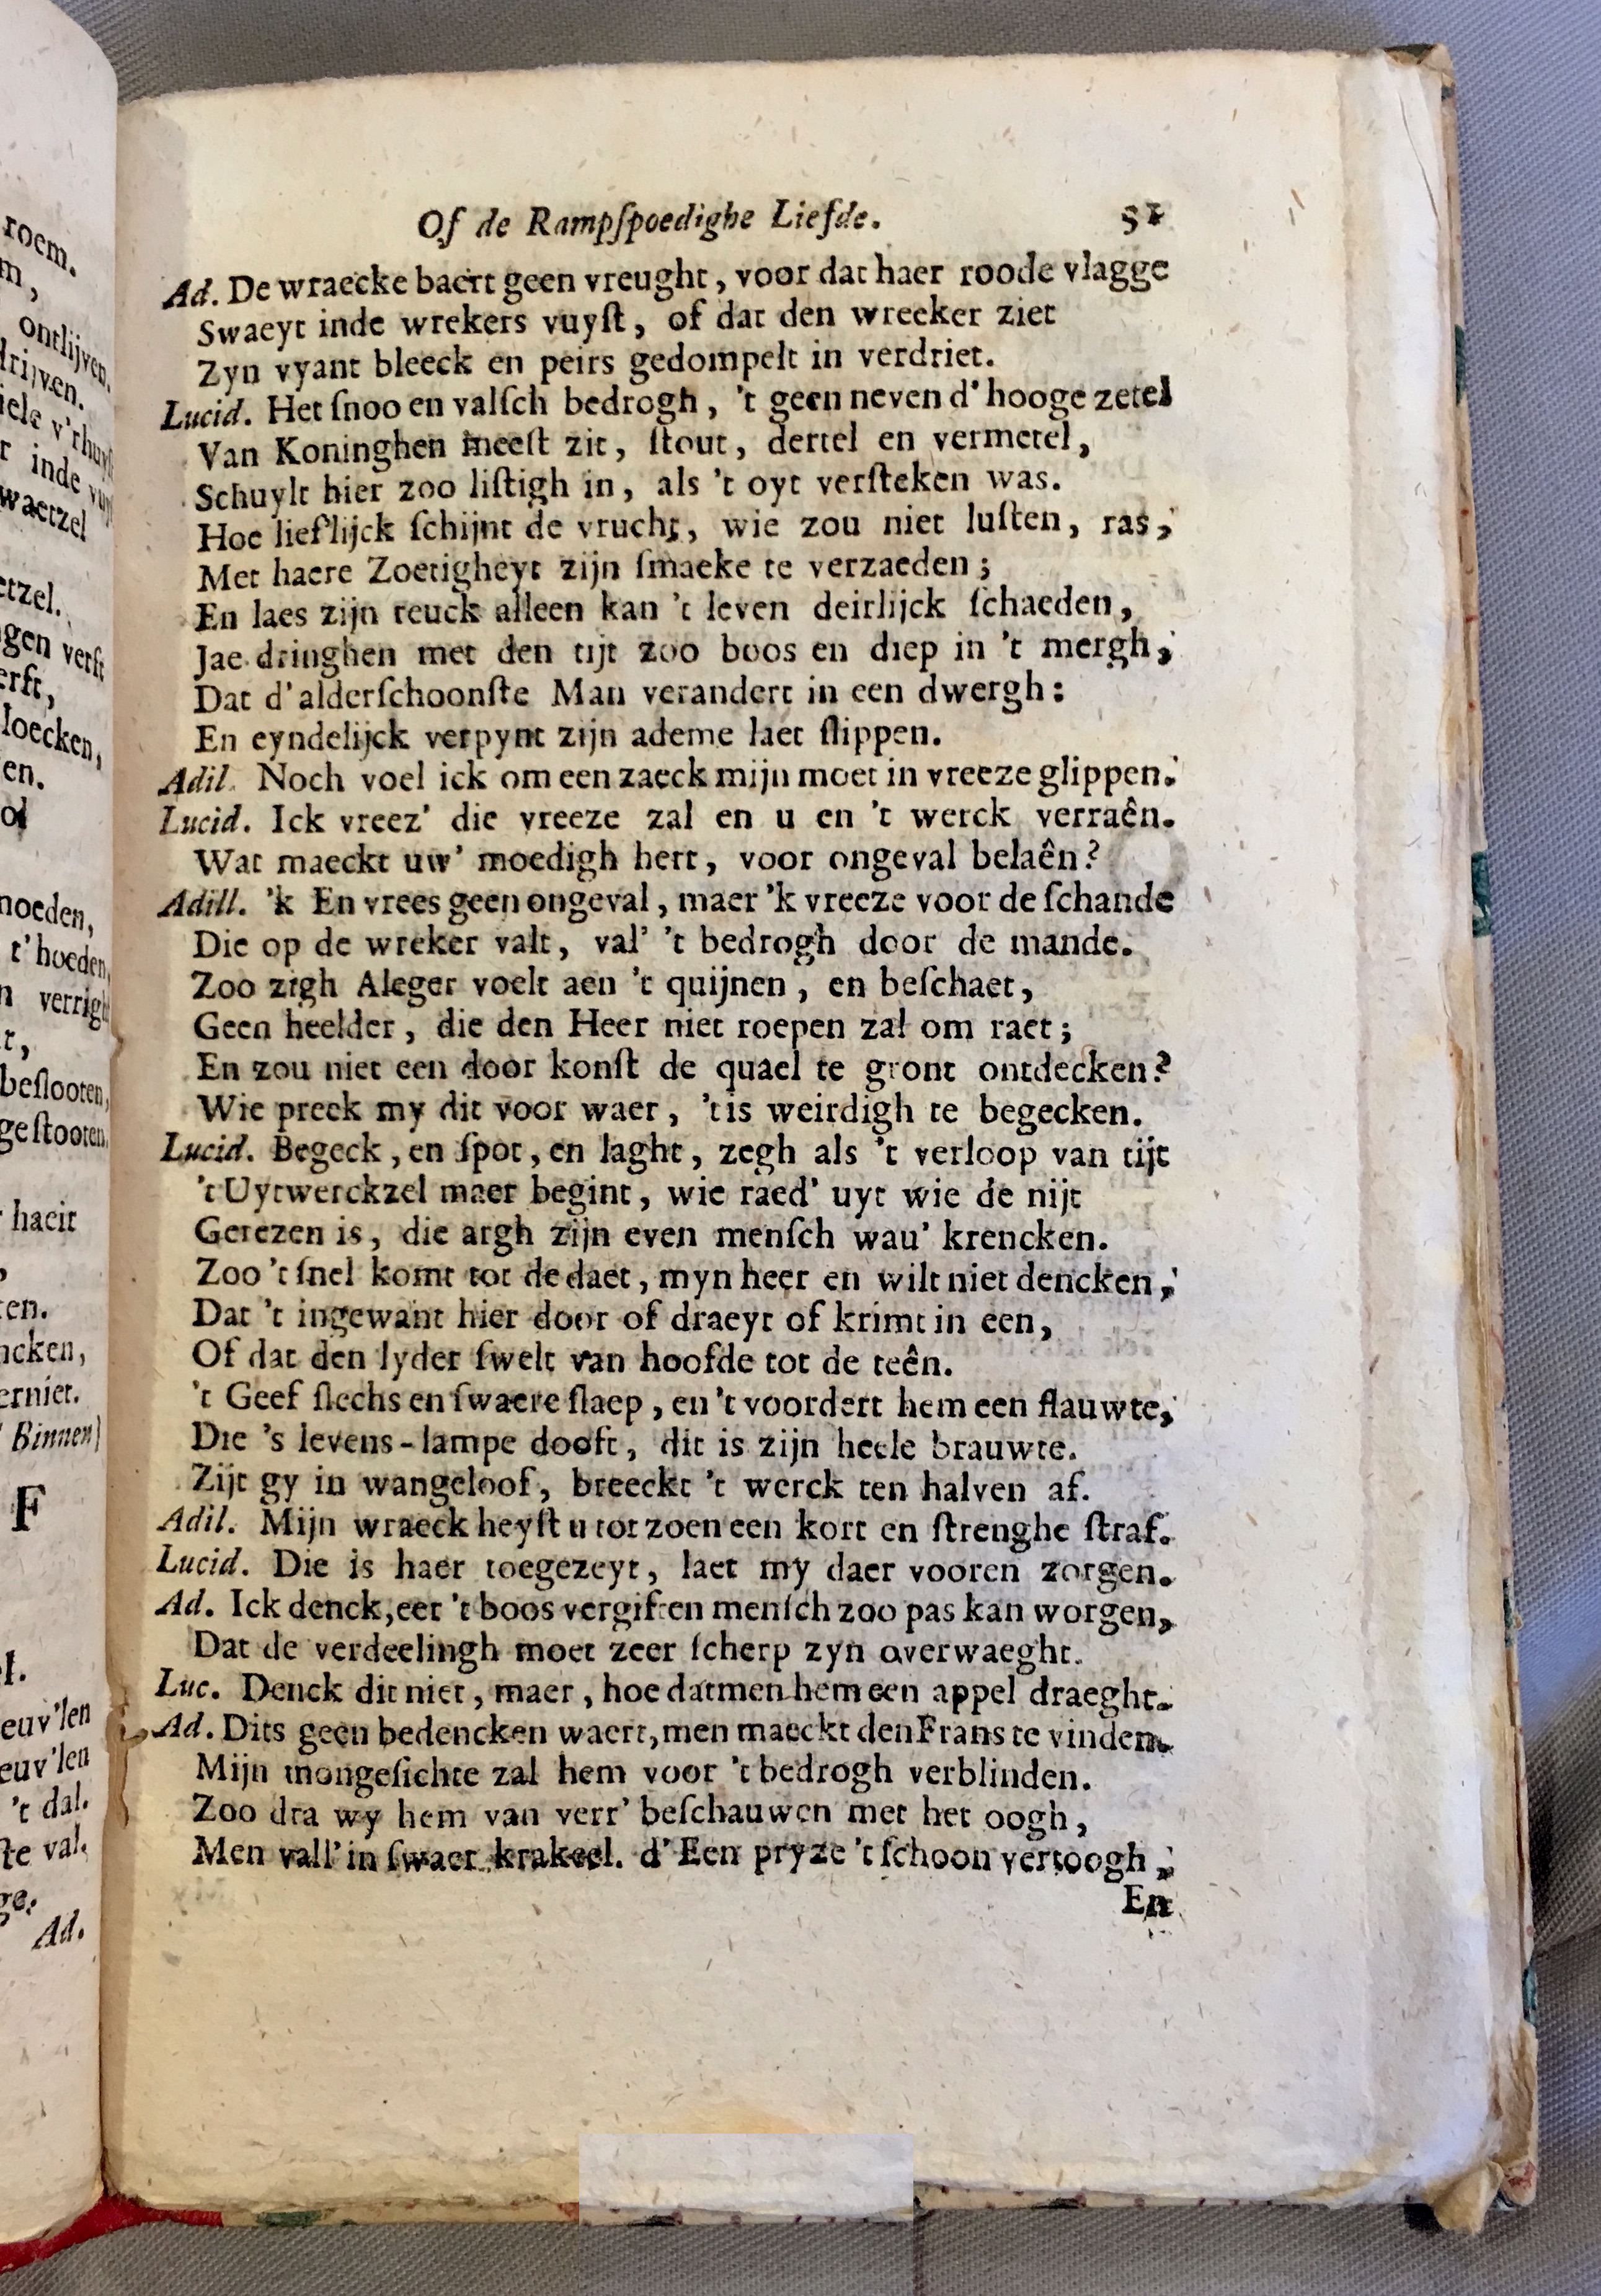 roem.
m,
ontlijven.
drijven.
iele v'rhuys
r inde vuy
waetzel
etzel.
gen verst
erft,
loecken,
en.
ol
noeden,
t'hoeden,
n verrigh
t,
beslooten,
gestooten.
haeir
,
ten.
ncken,
erniet.
Binnen)
F
l.
euv'len
euv'len
't dal.
te val.
ge.
Ad.
Of de Rampſpoedighe Liefde. 51
Ad. De wraecke baert geen vreught, voor dat haer roode vlagge
Swaeyt inde wrekers vuyſt, of dat den wreeker ziet
Zyn vyant bleeck en peirs gedompelt in verdriet.
Lucid. Het ſnoo en valſch bedrogh, 't geen neven d' hooge zetel
Van Koninghen meeſt zit, ſtout, dertel en vermetel,
Schuylt hier zoo liſtigh in, als 't oyt verſteken was.
Hoe lieflijck ſchijnt de vrucht, wie zou niet luſten, ras,
Met haere Zoetigheyt zijn ſmaeke te verzaeden;
En laes zijn reuck alleen kan 't leven deirlijck ſchaeden,
Jae dringhen met den tijt zoo boos en diep in 't mergh,
Dat d' alderſchoonſte Man verandert in een dwergh:
En eyndelijck verpynt zijn ademe laet ſlippen.
Adil. Noch voel ick om een zaeck mijn moet in vreeze glippen.
Lucid. Ick vreez' die vreeze zal en u en 't werck verraên.
Wat maeckt uw' moedigh hert, voor ongeval belaên?
Adill. 'k En vrees geen ongeval, maer 'k vreeze voor de ſchande
Die op de wreker valt, val' 't bedrogh door de mande.
Zoo zigh Aleger voelt aen 't quijnen, en beſchaet,
Geen heelder, die den Heer niet roepen zal om raet;
En zou niet een door konſt de quael te gront ontdecken?
Wie preek my dit voor waer, 't is weirdigh te begecken.
Lucid. Begeck, en ſpot, en laght, zegh als 't verloop van tijt
't Uytwerckzel maer begint, wie raed' uyt wie de nijt
Gerezen is, die argh zijn even menſch wau' krencken.
Zoo 't ſnel komt tot de daet, myn heer en wilt niet dencken,
Dat 't ingewant hier door of draeyt of krimt in een,
Of dat den lyder ſwelt van hoofde tot de teên.
't Geef ſlechs en ſwaere ſlaep, en 't voordert hem een flauwte,
Die 's levens-lampe dooft, dit is zijn heele brauwte.
Zijt gy in wangeloof, breeckt 't werck ten halven af.
Adil. Mijn wraeck heyſt u tot zoen een kort en ſtrenghe ſtraf.
Lucid. Die is haer toegezeyt, laet my daer vooren zorgen.
Ad. Ick denck, eer 't boos vergif een menſch zoo pas kan worgen,
Dat de verdeelingh moet zeer ſcherp zyn overwaeght.
Luc. Denck dit niet, maer, hoe datmen hem een appel draeght.
Ad. Dits geen bedencken waert, men maeckt den Frans te vinden.
Mijn mongeſichte zal hem voor 't bedrogh verblinden.
Zoo dra wy hem van verr' beſchauwen met het oogh,
Men vall' in ſwaer krakeel. d' Een pryze 't ſchoon vertoogh,
En